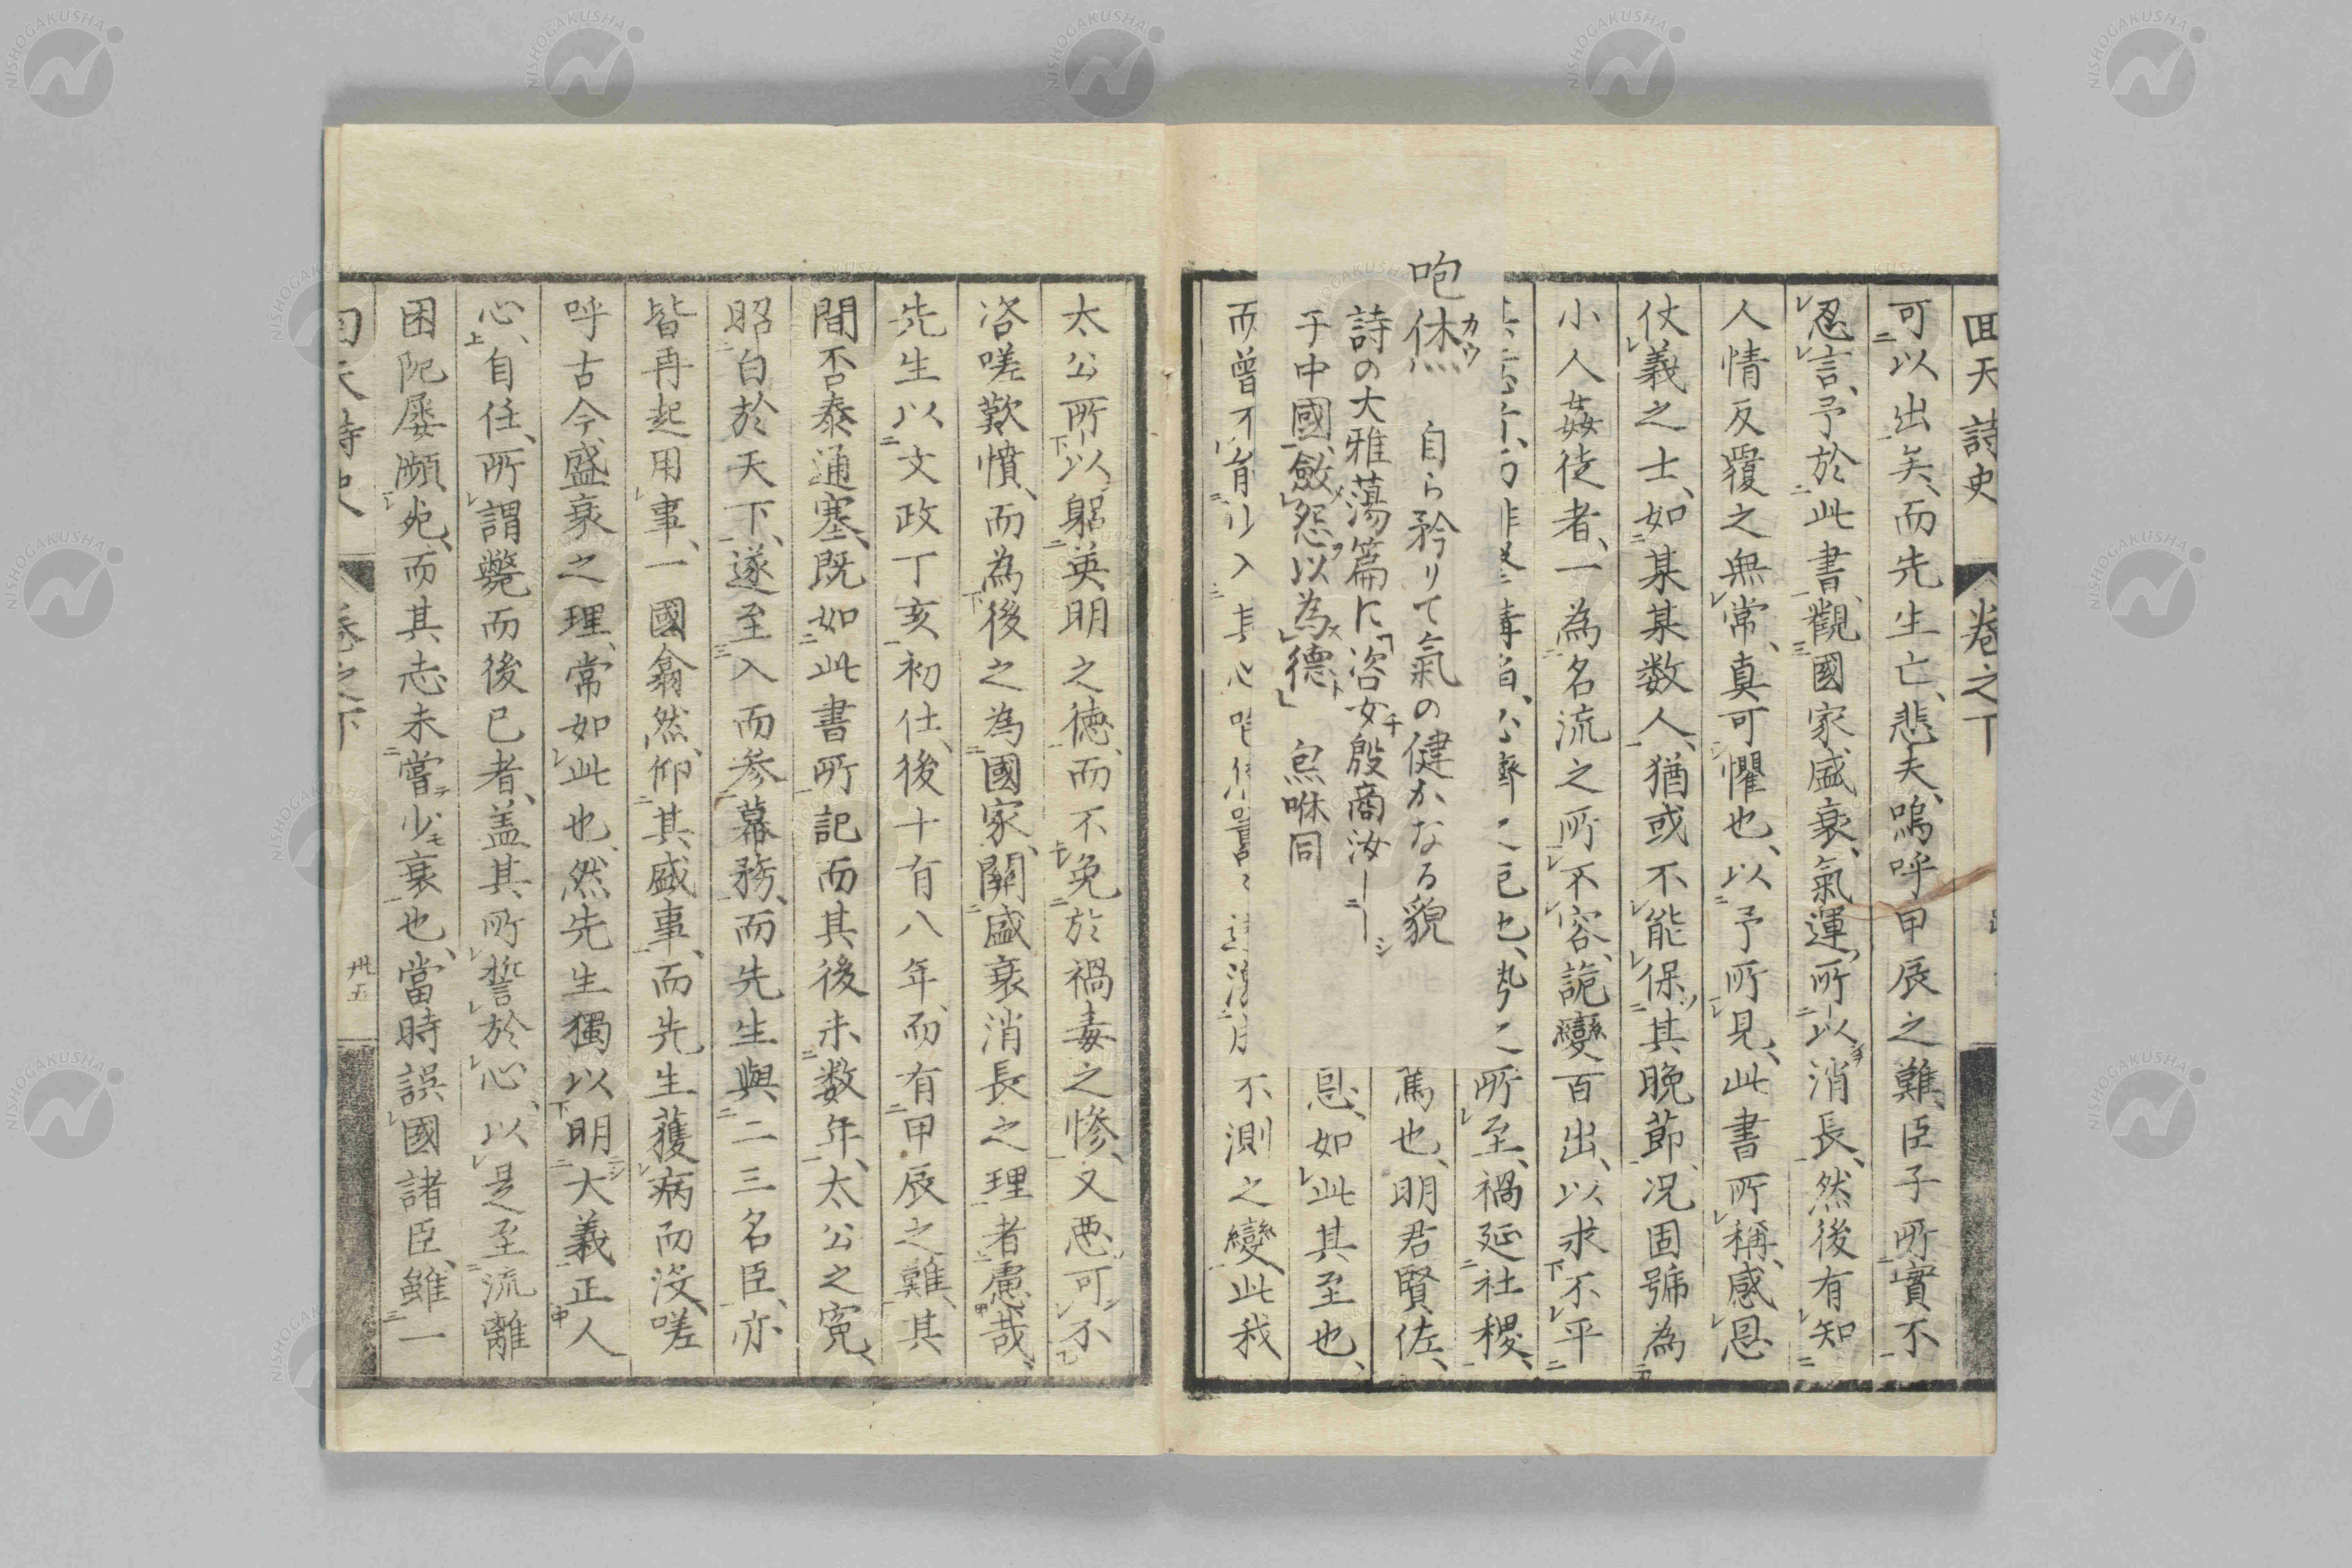 回天詩史 卷之下
可以出矣、而先生亡、悲夫、嗚呼甲辰之難、臣子所實不
忍言、予於此書、觀國家盛衰、氣運所以消長、然後有知
人情反覆之無常、真可懼也、以予所見、此書所稱、感恩
仗義之士、如某某数人、猶或不能保其晩節、况固號為
小人姦徒者、一為名流之所不容、詭變百出、以求不平
所至、禍延社稷、
馬也、明君賢佐、
如此其至也、
咆烋 自ら矜りて氣の健かなる貌
カウ
詩の大雅蕩篇に「咨女殷商汝
于中國、斂怨以為德」 炰咻同
而曾不
不測之變、此我
太公所以躬英明之徳、而不免於禍毒之惨、又悪可不
洛嗟歎憤、而為後之為國家、關盛衰消長之理者慮哉、
先生以文政丁亥初仕、後十有八年、而有甲辰之難、其
間否泰通塞、既如此書所記而其後未数年、太公之寃、
昭白於天下、遂至入而参幕務、而先生與二三名臣、亦
皆再起用事、一國翕然、仰其盛事、而先生獲病而没、嗟
呼古今盛衰之理、常如此也、然先生獨以明大義正人
心、自任、所謂斃而後已者、盖其所誓於心、以是至流離
困阨屡瀕死、而其志未嘗少衰也、當時誤國諸臣、雖一
卅五